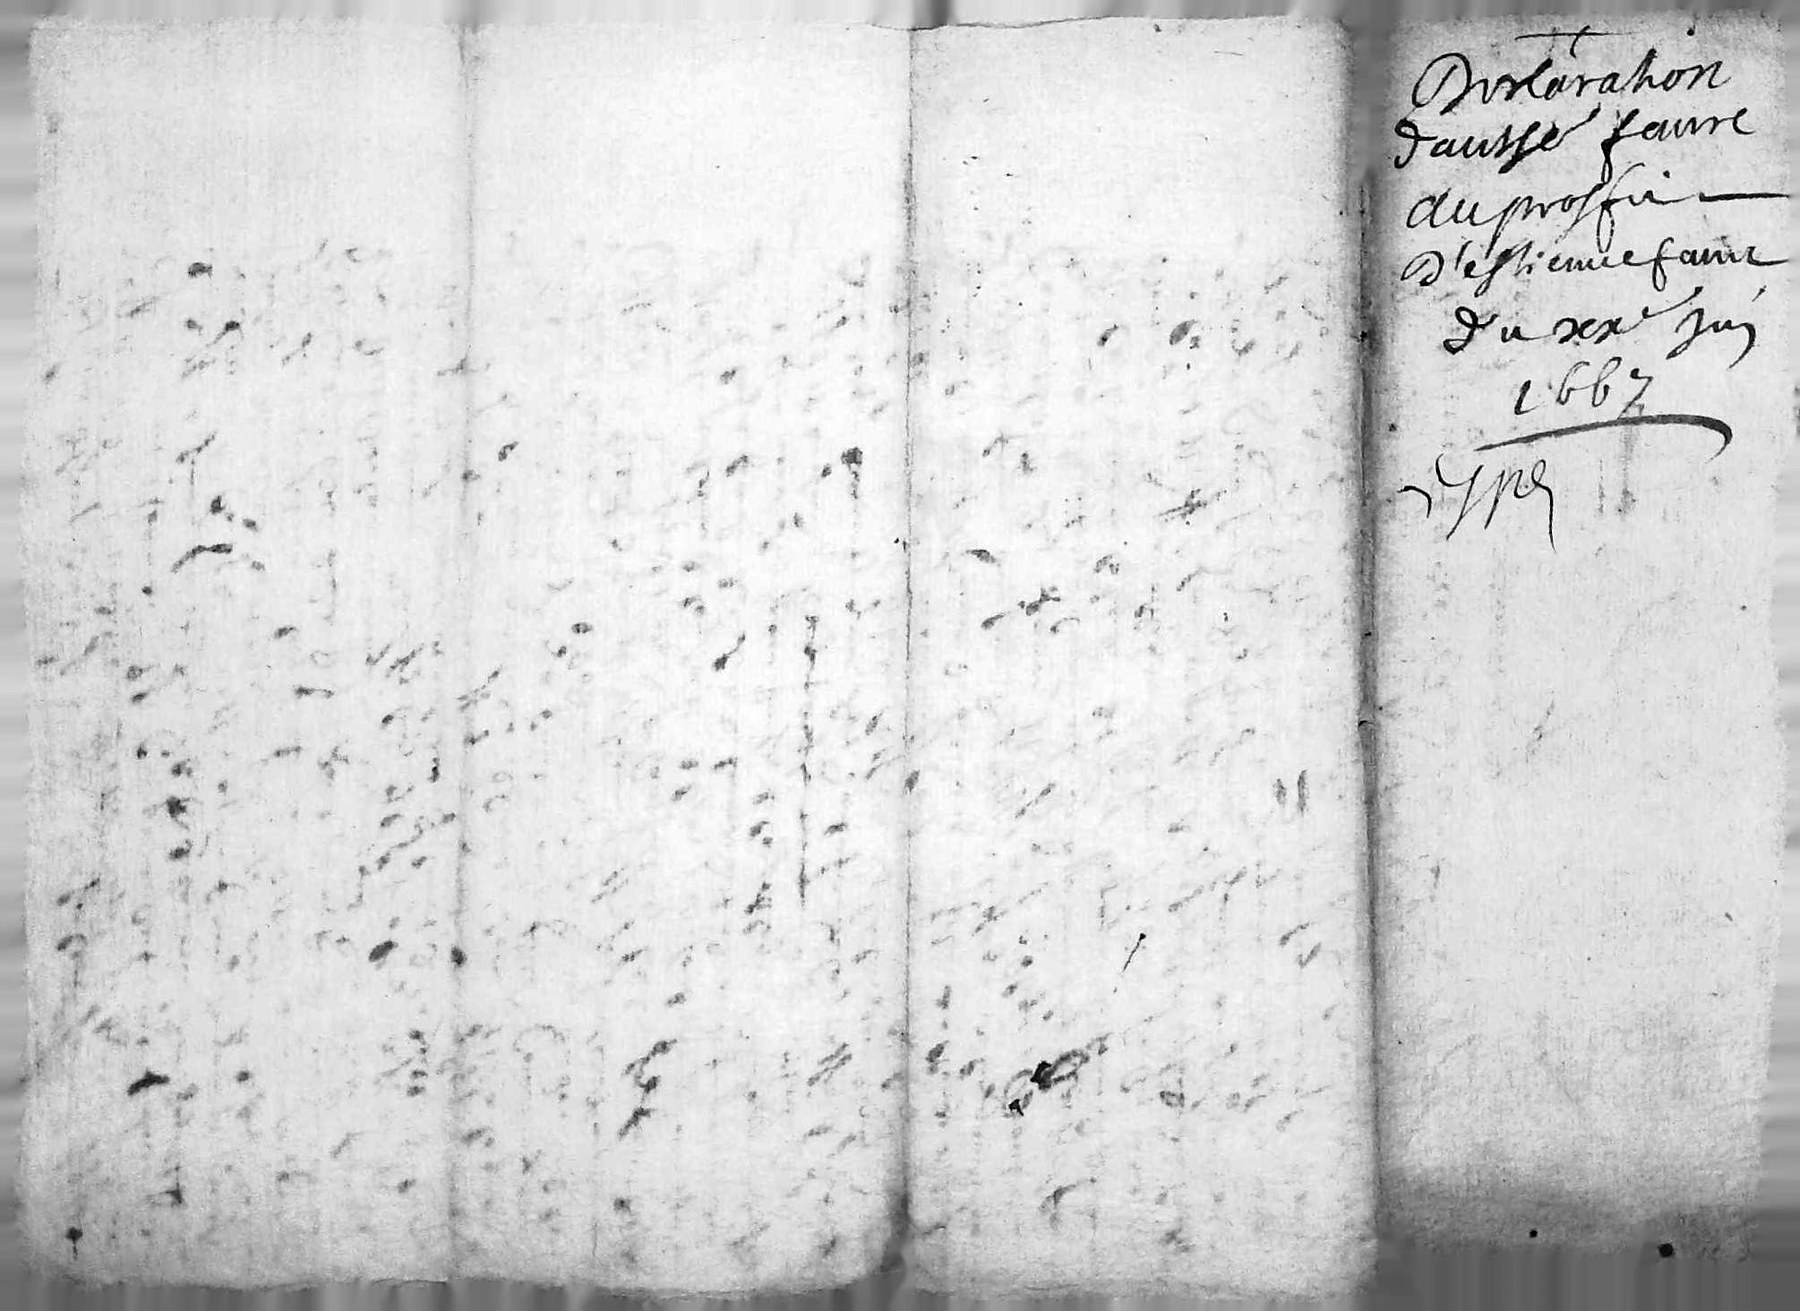 Declaration
d'autho faure
au proffit
D'estienne faure
du xxe juin
1667